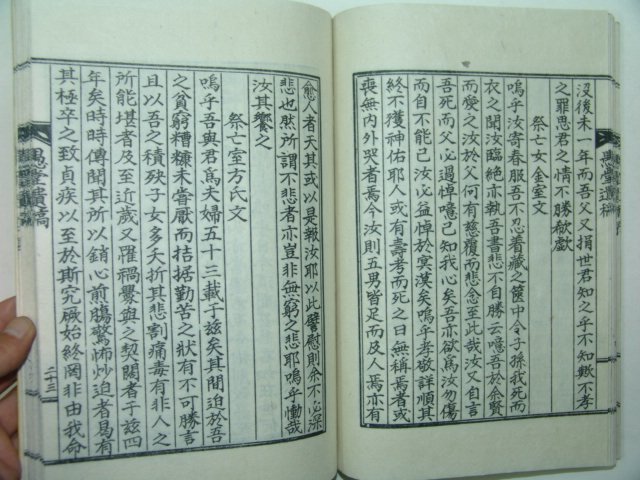 沒後未一年而吾父又捐世君知之乎不知歟不孝
之罪思君之情不勝歔欷
祭亡女金室文
嗚乎汝寄春服吾不忍着藏之篋中令子孫我死而
衣之聞汝臨絶亦執吾書悲不自勝云噫吾於余賢
而愛之汝於父何有慈覆而悲念至此哉汝又自言
吾死而父必過悼噫已知我心矣吾亦欲爲汝勿傷
而自不能已汝必益悼於冥漠矣嗚乎孝敬詳順其
終不獲神佑耶人或有壽考而死之日無稱焉者或
喪無內外哭者焉今汝則五男皆足而及人焉亦有
愈人者天其或以是報汝耶以此譬慰則余不必深
悲也然所謂不悲者亦豈非無窮之悲耶嗚乎慟哉
汝其饗之
祭亡室方氏文
嗚乎吾與君爲夫婦五十三載于玆矣其間迫於吾
之貧窮糟糠未嘗厭而拮据勤苦之狀有不可勝言
且以吾之積殃子女多夭折其悲割痛毒有非人之
所能堪者及至近歲又罹禍釁與之契闊者于玆四
年矣時時傳聞其所以銷心煎膓驚怖炒迫者曷有
其極卒之致貞疾以至於斯究厥始終罔非由我命
愚堂遺稿
愚堂遺稿
二十三